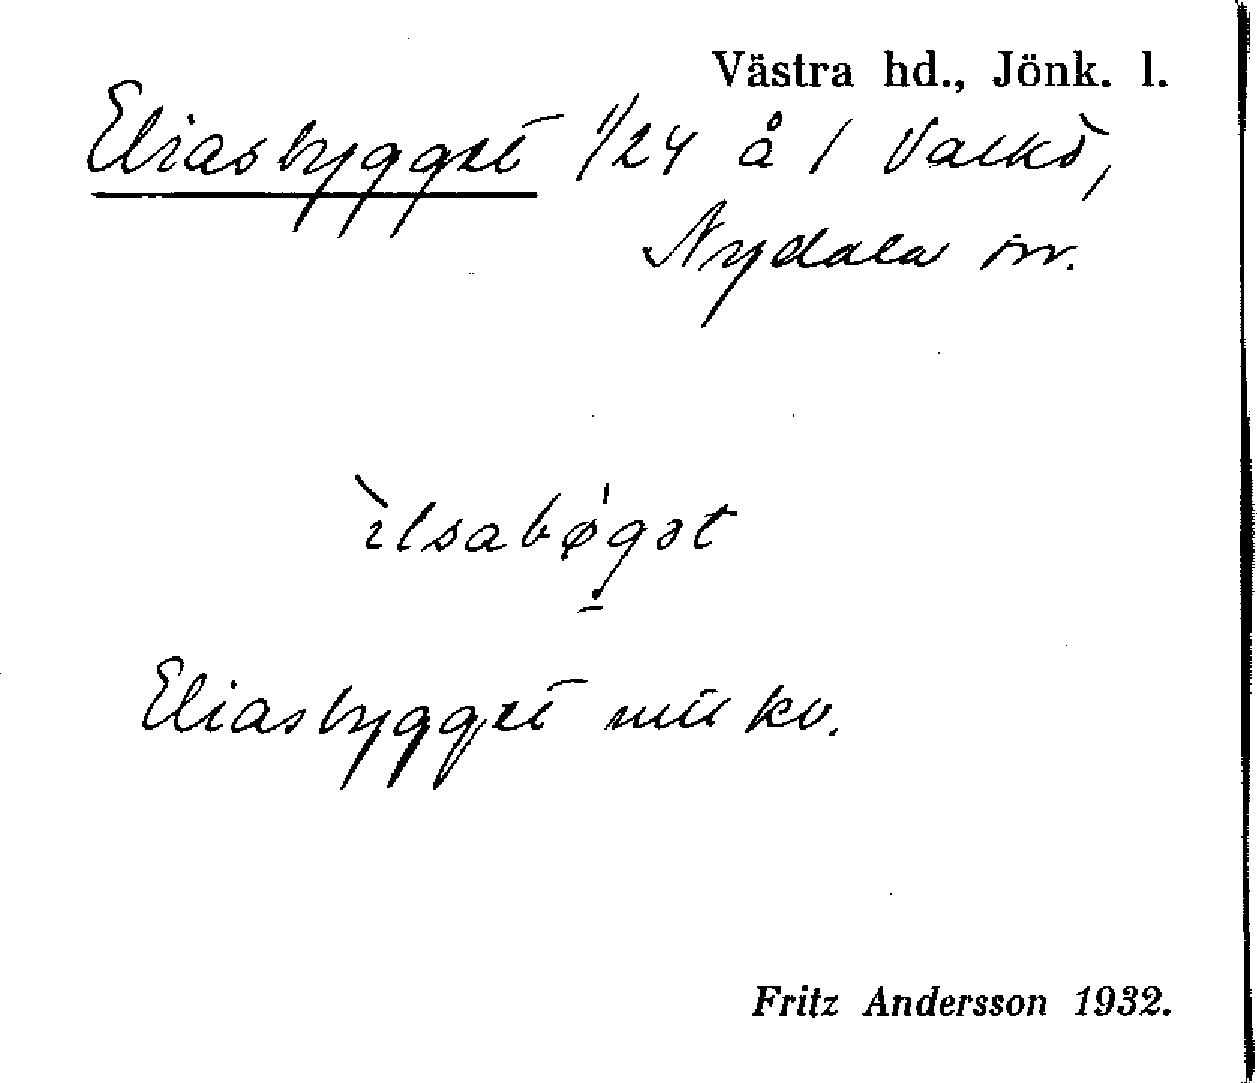 Västra hd., Jönk. l.
Eliasbygget 1/24 å 1 Valkö,
Nydala sn.
ìlsabøgət
Eliasbygget mtl kv.
Fritz Andersson 1932.